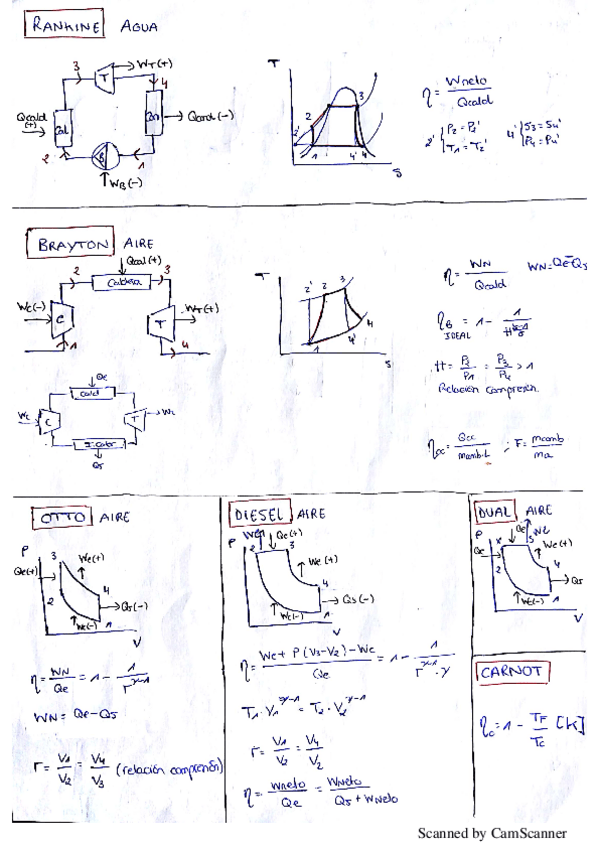 RANKINE AGUA
3
WT(+)
T
4
Qcald
(+)
Cal
Con
Qcond(-)
2
B
1
WB(-)
T
2
3
2'
1
4'
4
S
η = Wneto / Qcald
2' { P2 = P2'
T1 = T2'
4' { S3 = S4'
P4 = P4'
BRAYTON AIRE
Qcal(+)
2
Caldera
3
Wc(-)
C
T
WT(+)
1
4
T
2'
2
3
4
4'
1
S
η = WN / Qcald
WN = Qe - Qs
ηB = 1 -
IDEAL
π = P2 / P1 = P3 / P4 > 1
Relación Compresión
Qe
Cald
Wc
C
T
Qs
ηcc = Qcc / mcomb·L ; F = mcomb / ma
OTTO AIRE
P
3
Qe(+)
We(+)
2
4
Qs(-)
Wc(-)
1
V
η = WN / Qe = 1 - 1 / r^γ-1
WN = Qe - Qs
r = V1 / V2 = V4 / V3 (relación compresión)
DIESEL AIRE
P
Qe(+)
2
3
We(+)
4
Qs(-)
Wc(-)
1
V
η = We + P(V3-V2) - Wc / Qe = 1 - 1 / r^γ-1 · γ
T1 · V1^γ-1 = T2 · V2^γ-1
r = V1 / V2 = V4 / V2
η = Wneto / Qe = Wneto / Qs + Wneto
DUAL AIRE
P
Qe
3
Qe
We(+)
2
4
Qs
Wc(-)
1
V
CARNOT
ηc = 1 - TF / TC [K]
Scanned by CamScanner